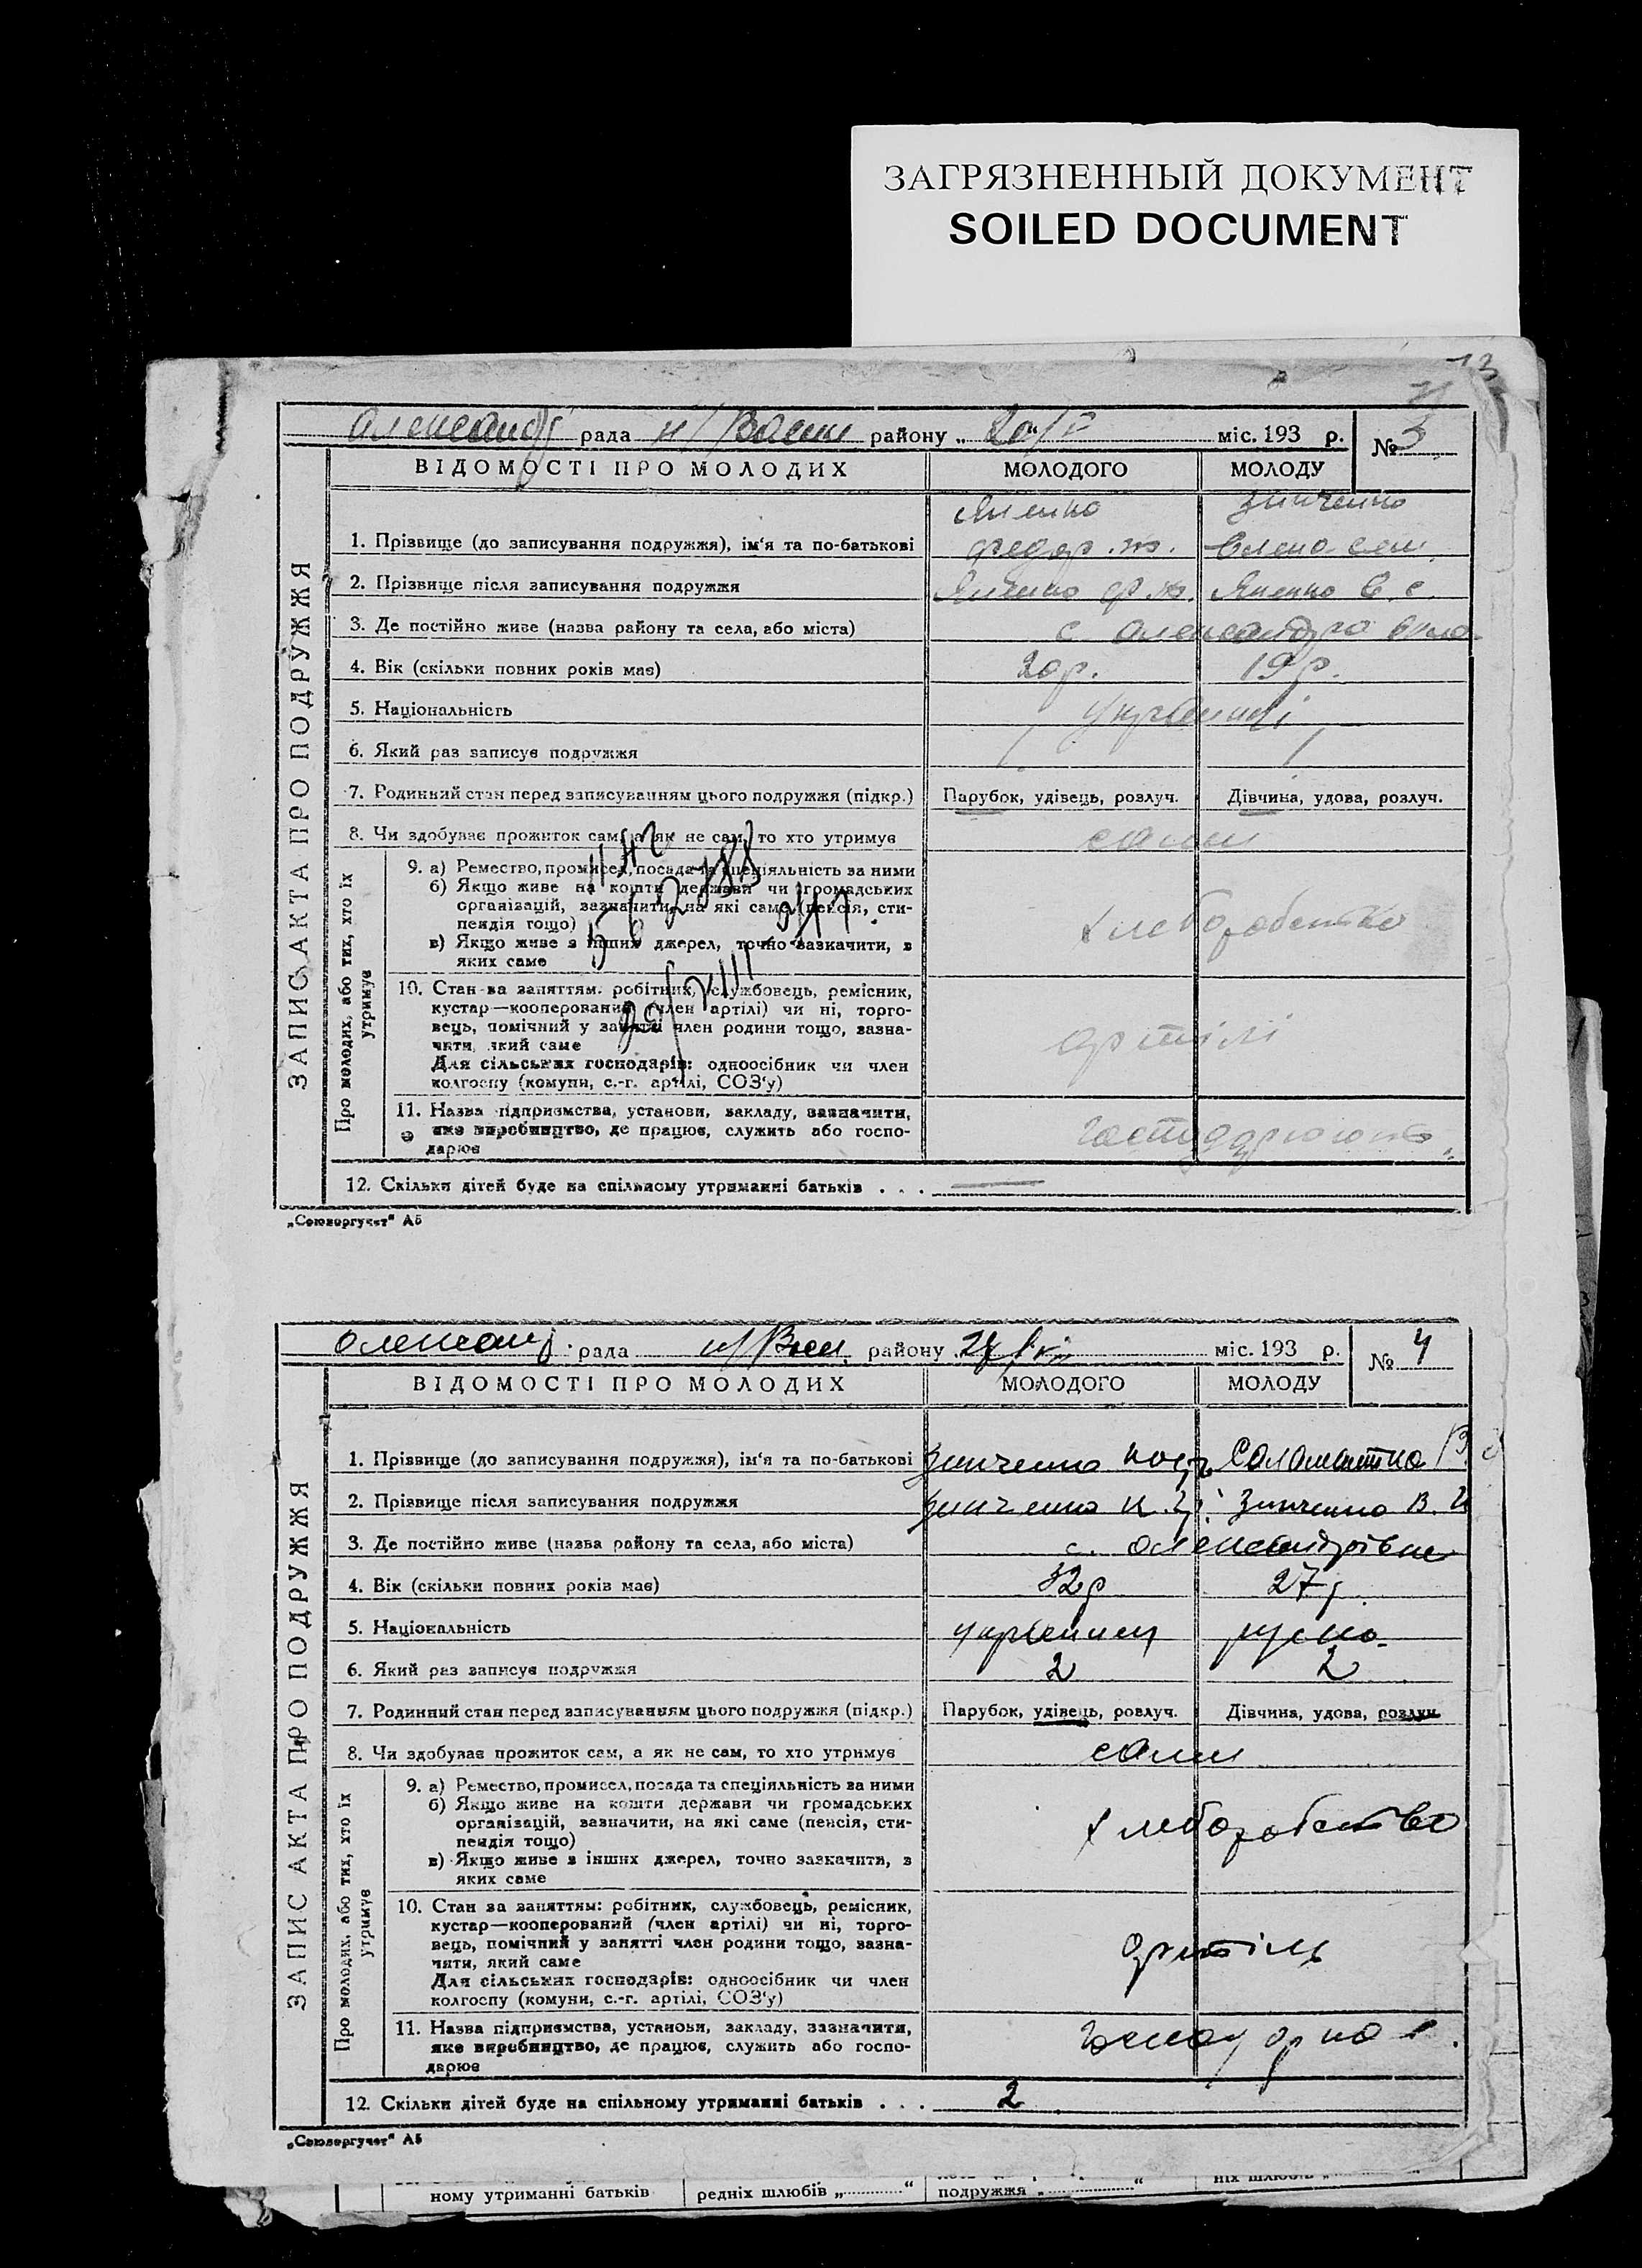 ЗАГРЯЗНЕННЫЙ ДОКУМЕНТ
SOILED DOCUMENT
13
рада району „ міс. 193 р. № 3
ВІДОМОСТІ ПРО МОЛОДИХ МОЛОДОГО МОЛОДУ
ЗАПИС АКТА ПРО ПОДРУЖЖЯ
Зинченко
1. Прізвище (до записування подружжя), ім'я та по-батькові
2. Прізвище після записування подружжя
3. Де постійно живе (назва району та села, або міста) с.
4. Вік (скільки повних років має) 20р. 19р.
5. Національність
6. Який раз записує подружжя 1 1
7. Родинний стан перед записуванням цього подружжя (підкр.) Парубок, удівець, розлуч. Дівчина, удова, розлуч.
8. Чи здобуває прожиток сам, а як не сам, то хто утримує сами
Про молодих, або тих, хто їх утримує
9. а) Ремество, промисел, посада та спеціяльність за ними
б) Якщо живе на кошти держави чи громадських
організацій, зазначити, на які саме (пенсія, сти-
пендія тощо) хлеборобство
в) Якщо живе з інших джерел, точно зазначити, з
яких саме
10. Стан за заняттям: робітник, службовець, ремісник,
кустар—кооперований (член артілі) чи ні, торго-
вець, помічний у занятті член родини тощо, зазна-
чити, який саме артілі
Для сільських господарів: одноосібник чи член
колгоспу (комуни, с.-г. артілі, СОЗ'у)
11. Назва підприємства, установи, закладу, зазначити,
яке виробництво, де працює, служить або госпо-
дарює
12. Скільки дітей буде на спільному утриманні батьків . . . —
„Союзоргучет" А5
рада району міс. 193 р. № 4
ВІДОМОСТІ ПРО МОЛОДИХ МОЛОДОГО МОЛОДУ
ЗАПИС АКТА ПРО ПОДРУЖЖЯ
1. Прізвище (до записування подружжя), ім'я та по-батькові Зинченко
2. Прізвище після записування подружжя Зинченко Зинченко В.
3. Де постійно живе (назва району та села, або міста) с.
4. Вік (скільки повних років має) 32р 27р.
5. Національність
6. Який раз записує подружжя 2 2
7. Родинний стан перед записуванням цього подружжя (підкр.) Парубок, удівець, розлуч. Дівчина, удова, розлуч.
8. Чи здобуває прожиток сам, а як не сам, то хто утримує сами
Про молодих, або тих, хто їх утримує
9. а) Ремество, промисел, посада та спеціяльність за ними
б) Якщо живе на кошти держави чи громадських
організацій, зазначити, на які саме (пенсія, сти-
пендія тощо) хлеборобство
в) Якщо живе з інших джерел, точно зазначити, з
яких саме
10. Стан за заняттям: робітник, службовець, ремісник,
кустар—кооперований (член артілі) чи ні, торго-
вець, помічний у занятті член родини тощо, зазна-
чити, який саме артіль
Для сільських господарів: одноосібник чи член
колгоспу (комуни, с.-г. артілі, СОЗ'у)
11. Назва підприємства, установи, закладу, зазначити,
яке виробництво, де працює, служить або госпо-
дарює
12. Скільки дітей буде на спільному утриманні батьків . . . 2
„Союзоргучет" А5
ному утриманні батьків редніх шлюбів „ “ подружжя „ “ ніх шлюбів „ “